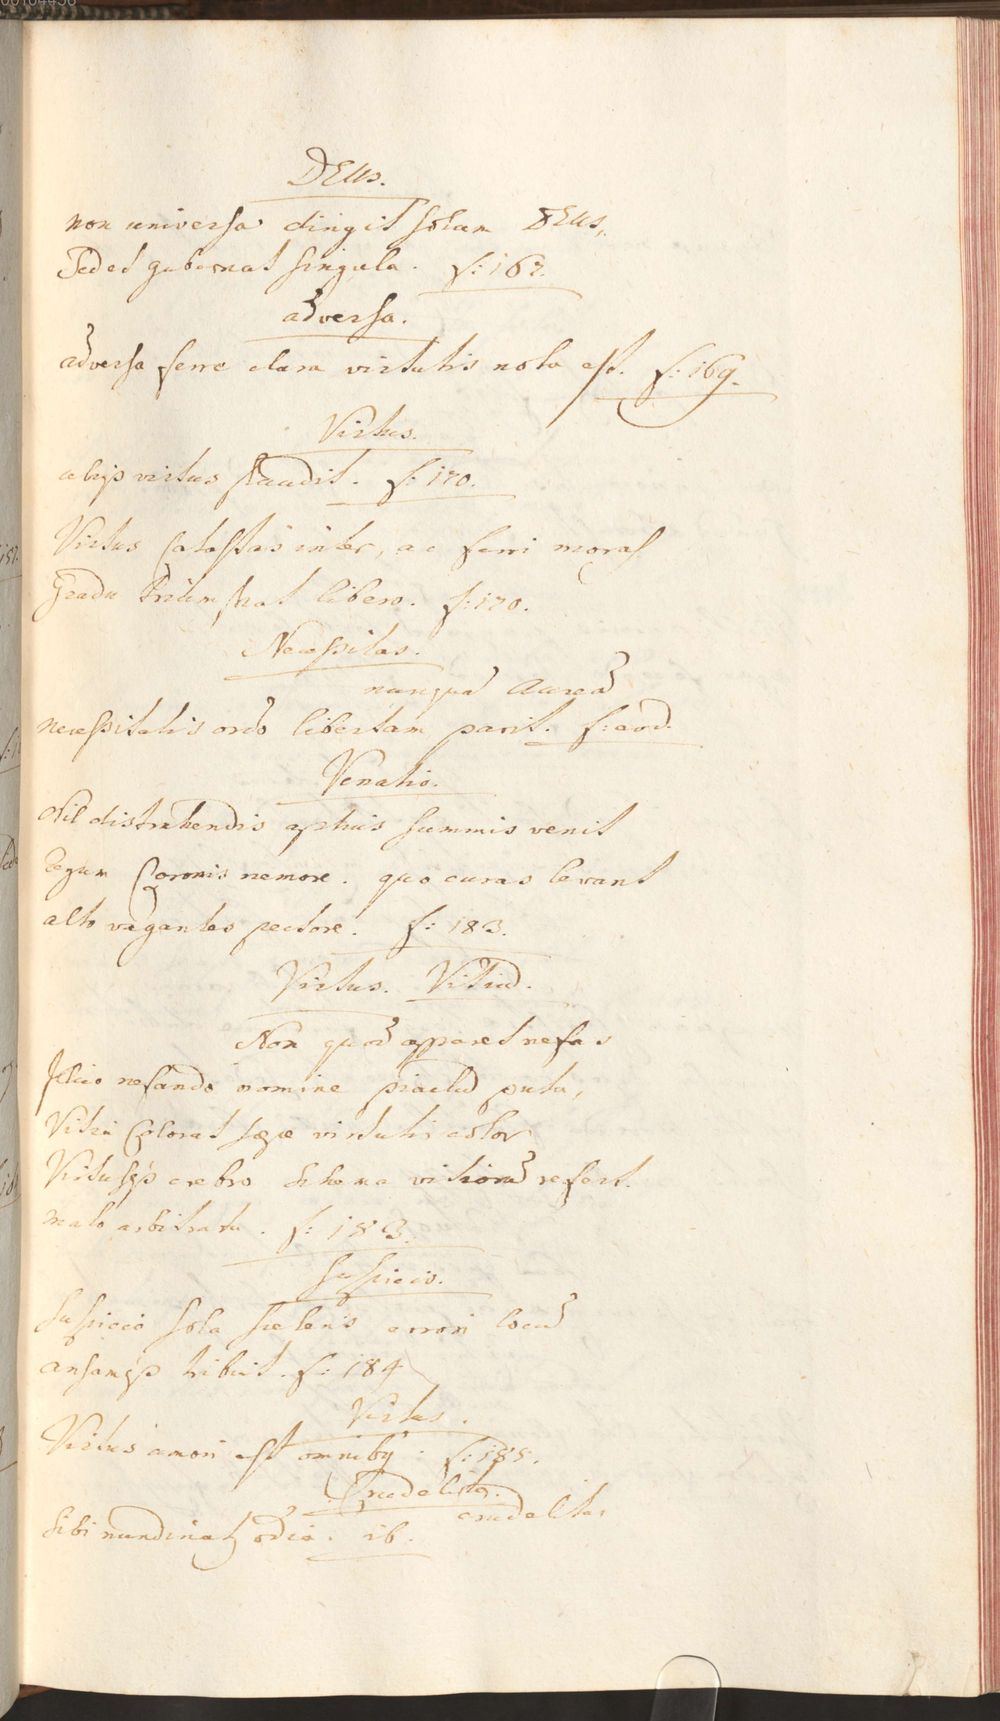 DEus.
non universa dirigit solum DEus,
Sed et gubernat singula. f: 167.
adversa.
adversa ferre clara virtutis nota est. f: 169.
Virtus.
virtus plaudit. f: 170.
Virtus Catastas inter, ac ferri moras
Gradu trium phat libero. f: 170.
Necessitas.
nunquā Aureā
necessitatis ordo libertam parit. f: eod.
Venatio.
Nil distrahendis aptius summis venit
Regum Coronis nemore. quo curas levant
alto vagantes pectore. f: 183.
Virtus. Vitiū.
Non quod apparet nefas
Ilico nefando nomine piaclū puta,
Vitiū Colorat sæpe virtutis color
Virtusq̃ crebro schema vitiorū refert.
malo arbitratu. f: 183.
Suspicio.
Suspicio sola sceleris errori locū
ansamq̃ tribuit. f: 184
Virtus.
Virtus amori est omnibq: f: 185.
Crudelitas.
crudelitas
sibi nundinat odia. ib.